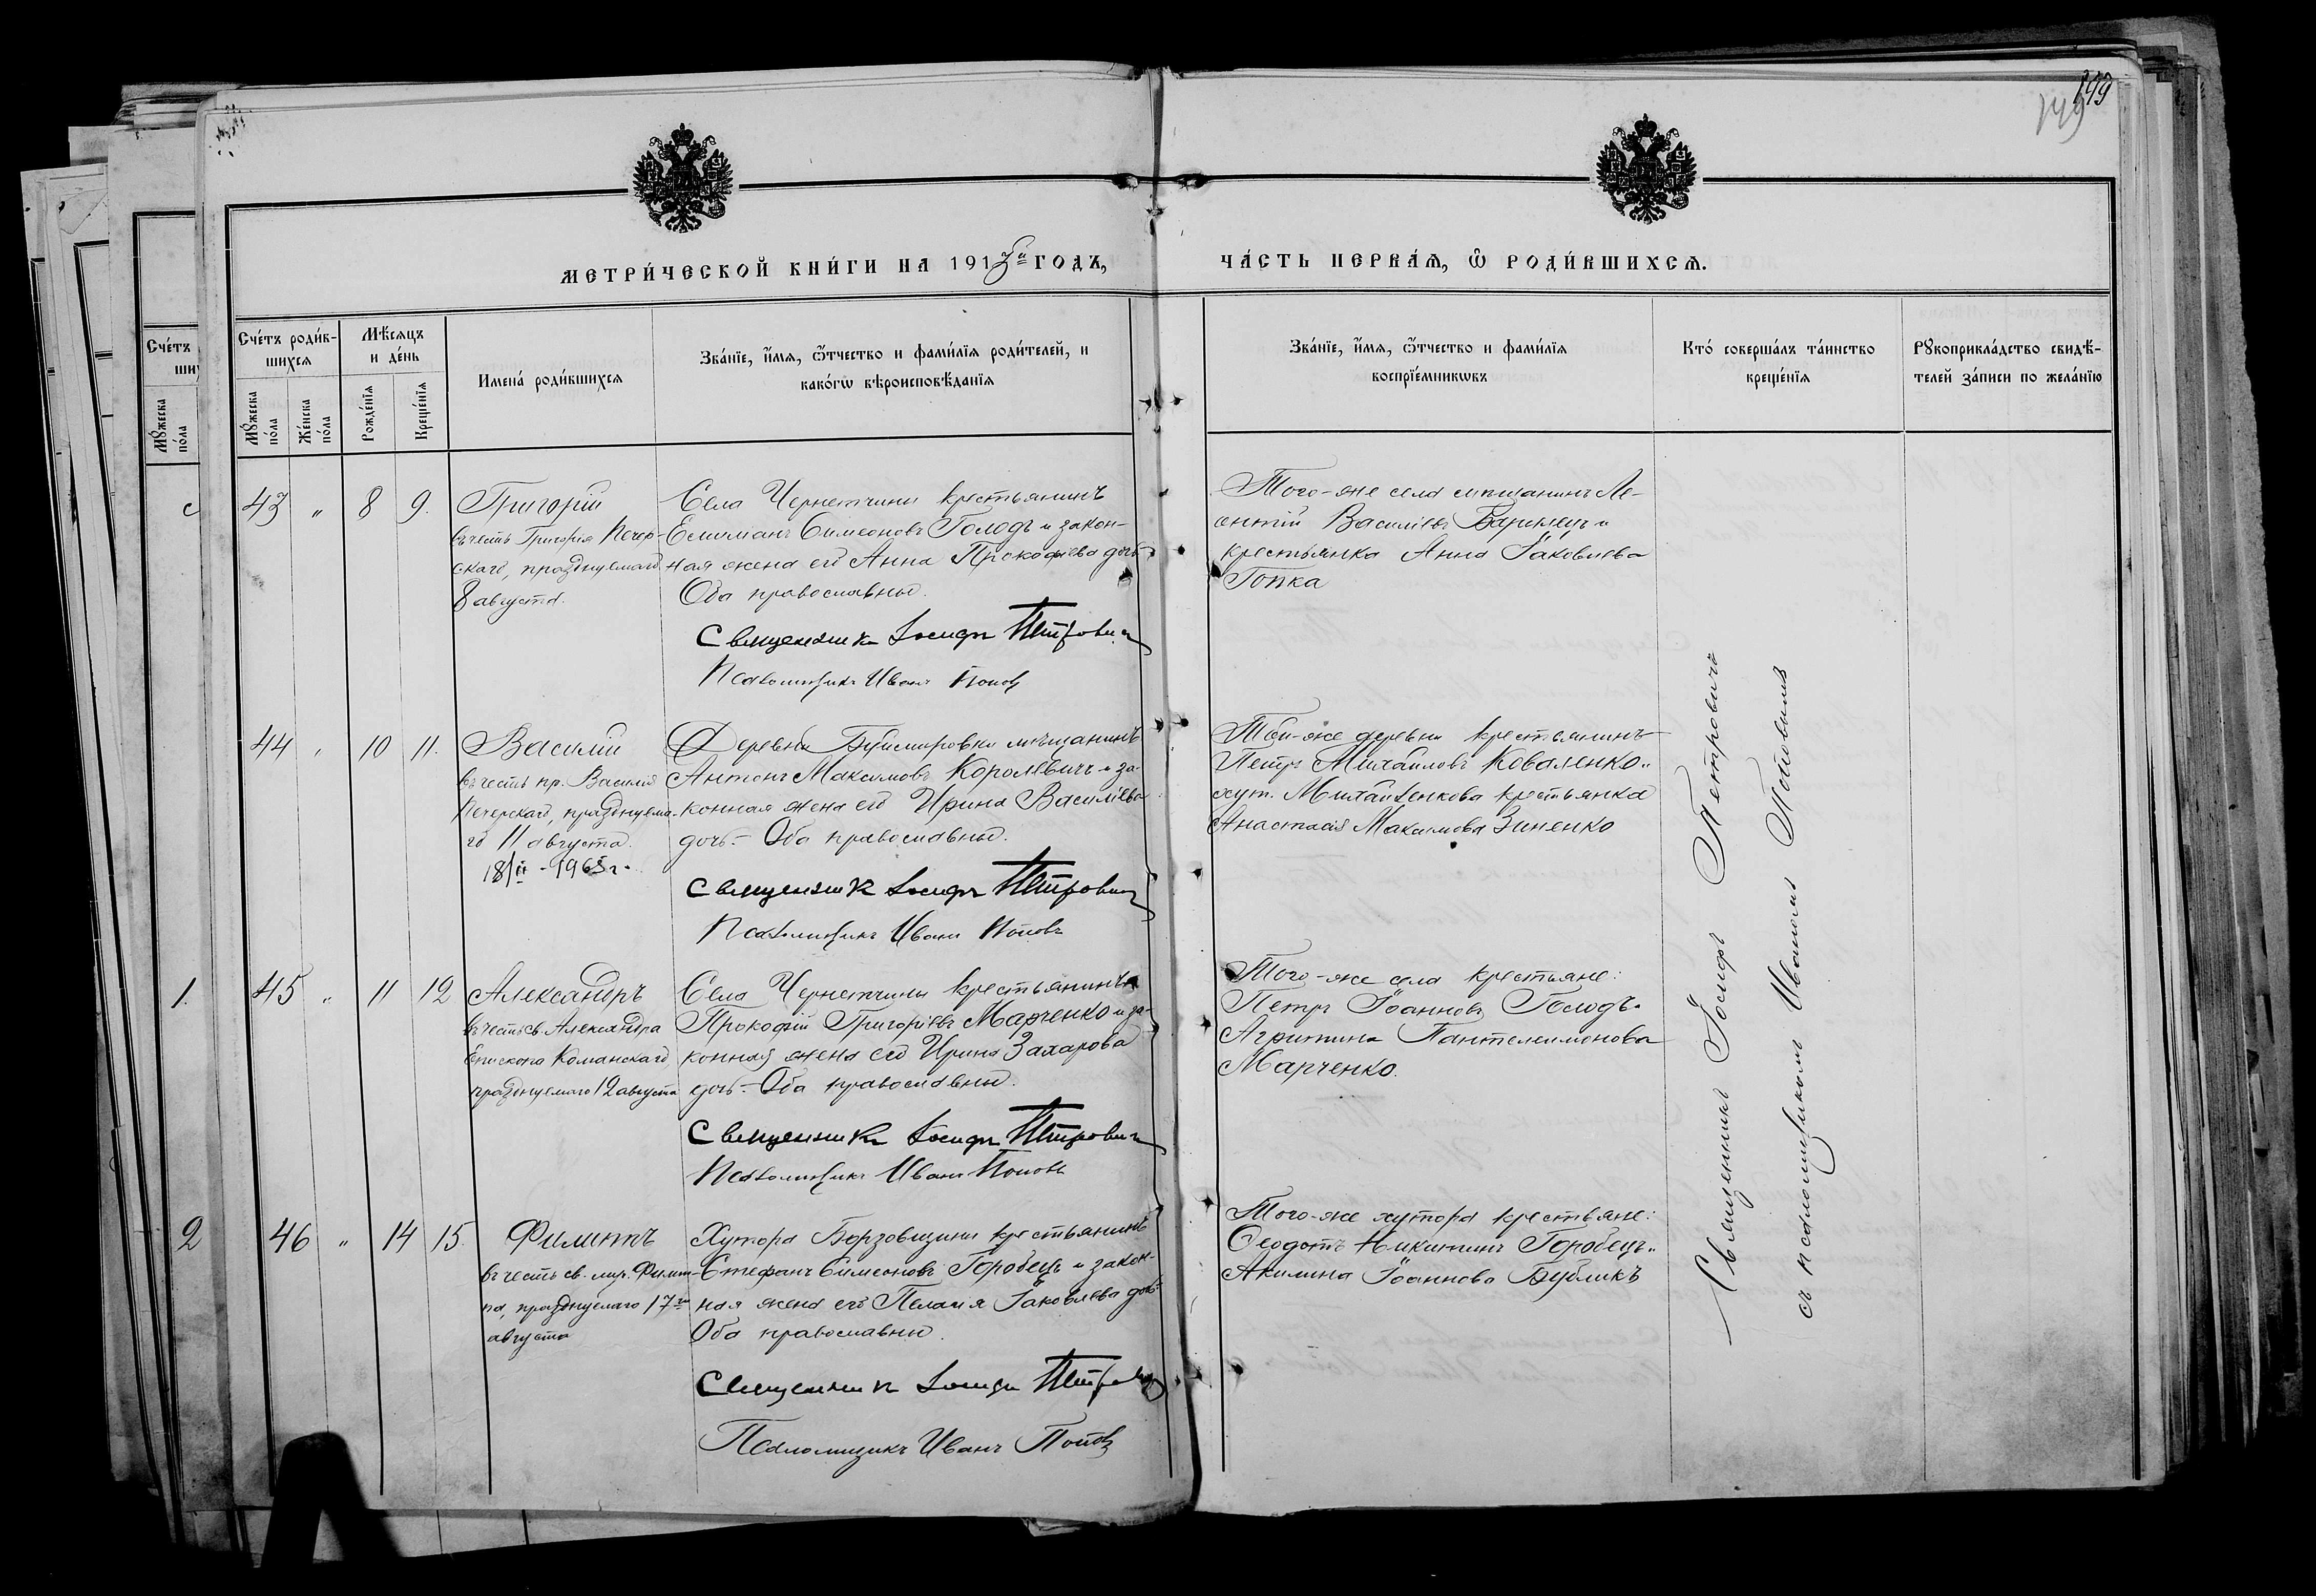 149
149
МЕТРИ́ЧЕСКОЙ КНИ́ГИ НА 1913й ГОДЪ,
ЧА́СТЬ ПЕРВАѦ, Ѡ РОДИ́ВШИХСѦ.
Сче́тъ роди́в-
шихсѧ
Мѣ́сѧцъ
и де́нь
Мꙋ́жеска
по́ла
Же́нска
по́ла
Рожде́нїѧ
Креще́нїѧ
Имена́ роди́вшихсѧ
Зва́нїе, и́мѧ, ѻ҆́тчество и фами́лїѧ роди́телей, и
како́гѡ вѣроисповѣ́данїѧ
Зва́нїе, и́мѧ, ѻ҆́тчество и фами́лїѧ
воспрїе́мникѡвъ
Кто́ соверша́лъ та́инство
креще́нїѧ
Рꙋкоприкла́дство свидѣ́-
телей за́писи по жела́нїю
Сче́тъ
Мꙋ́жеска
по́ла
43 " 8 9.
Григорій
въ честь Григорія Печер-
скаго, празднуемаго
8 августа.
Села Чернетчины крестьянинъ
Емиліанъ Симеоновъ Голодъ и закон-
ная жена его Анна Прокофіева дочь
Оба православные.
Священникъ Іосифъ Петровичъ
Псаломщикъ Иванъ Поповъ
Того-же села мѣщанинъ Ле-
онтій Василіевъ и
крестьянка Анна Іаковлева
Гопка
44 " 10 11.
Василій
въ честь пр. Василія
Печерскаго, празднуема-
го 11 августа.
18/II - 1965 г.
Деревни Буймировки мѣщанинъ
Антонъ Максимовъ Королевичъ и за-
конная жена его Ирина Василіева
дочь. - Оба православные.
Священникъ Іосифъ Петровичъ
Псаломщикъ Иванъ Поповъ
Той-же деревни крестьянинъ
Петръ Михайловъ Коваленко и
хут. Михайленкова крестьянка
Анастасія Максимова Зиненко
1.
45 " 11 12
Александръ
въ честь св. Александра
Епископа Команскаго,
празднуемаго 12 августа
Села Чернетчины крестьянинъ
Прокофій Григоріевъ Марченко и за-
конная жена его Ирина Захарова
дочь. - Оба православные.
Священникъ Іосифъ Петровичъ
Псаломщикъ Иванъ Поповъ
Того-же села крестьяне:
Петръ Іоанновъ Голодъ и
Агрипина Пантелеимонова
Марченко.
2
46 " 14 15.
Филиппъ
въ честь св. муч. Филип-
па, празднуемаго 17го
августа
Хутора Борзовщины крестьянинъ
Стефанъ Симеоновъ Горобецъ и закон-
ная жена его Пелагія Іаковлева дочь
Оба православные.
Священникъ Іосифъ Петровичъ
Псаломщикъ Иванъ Поповъ
Того-же хутора крестьяне:
Ѳеодотъ Никитинъ Горобецъ и
Акилина Іоаннова Бубликъ
Священникъ Іосифъ Петровичъ
съ псаломщикомъ Иваномъ Поповымъ